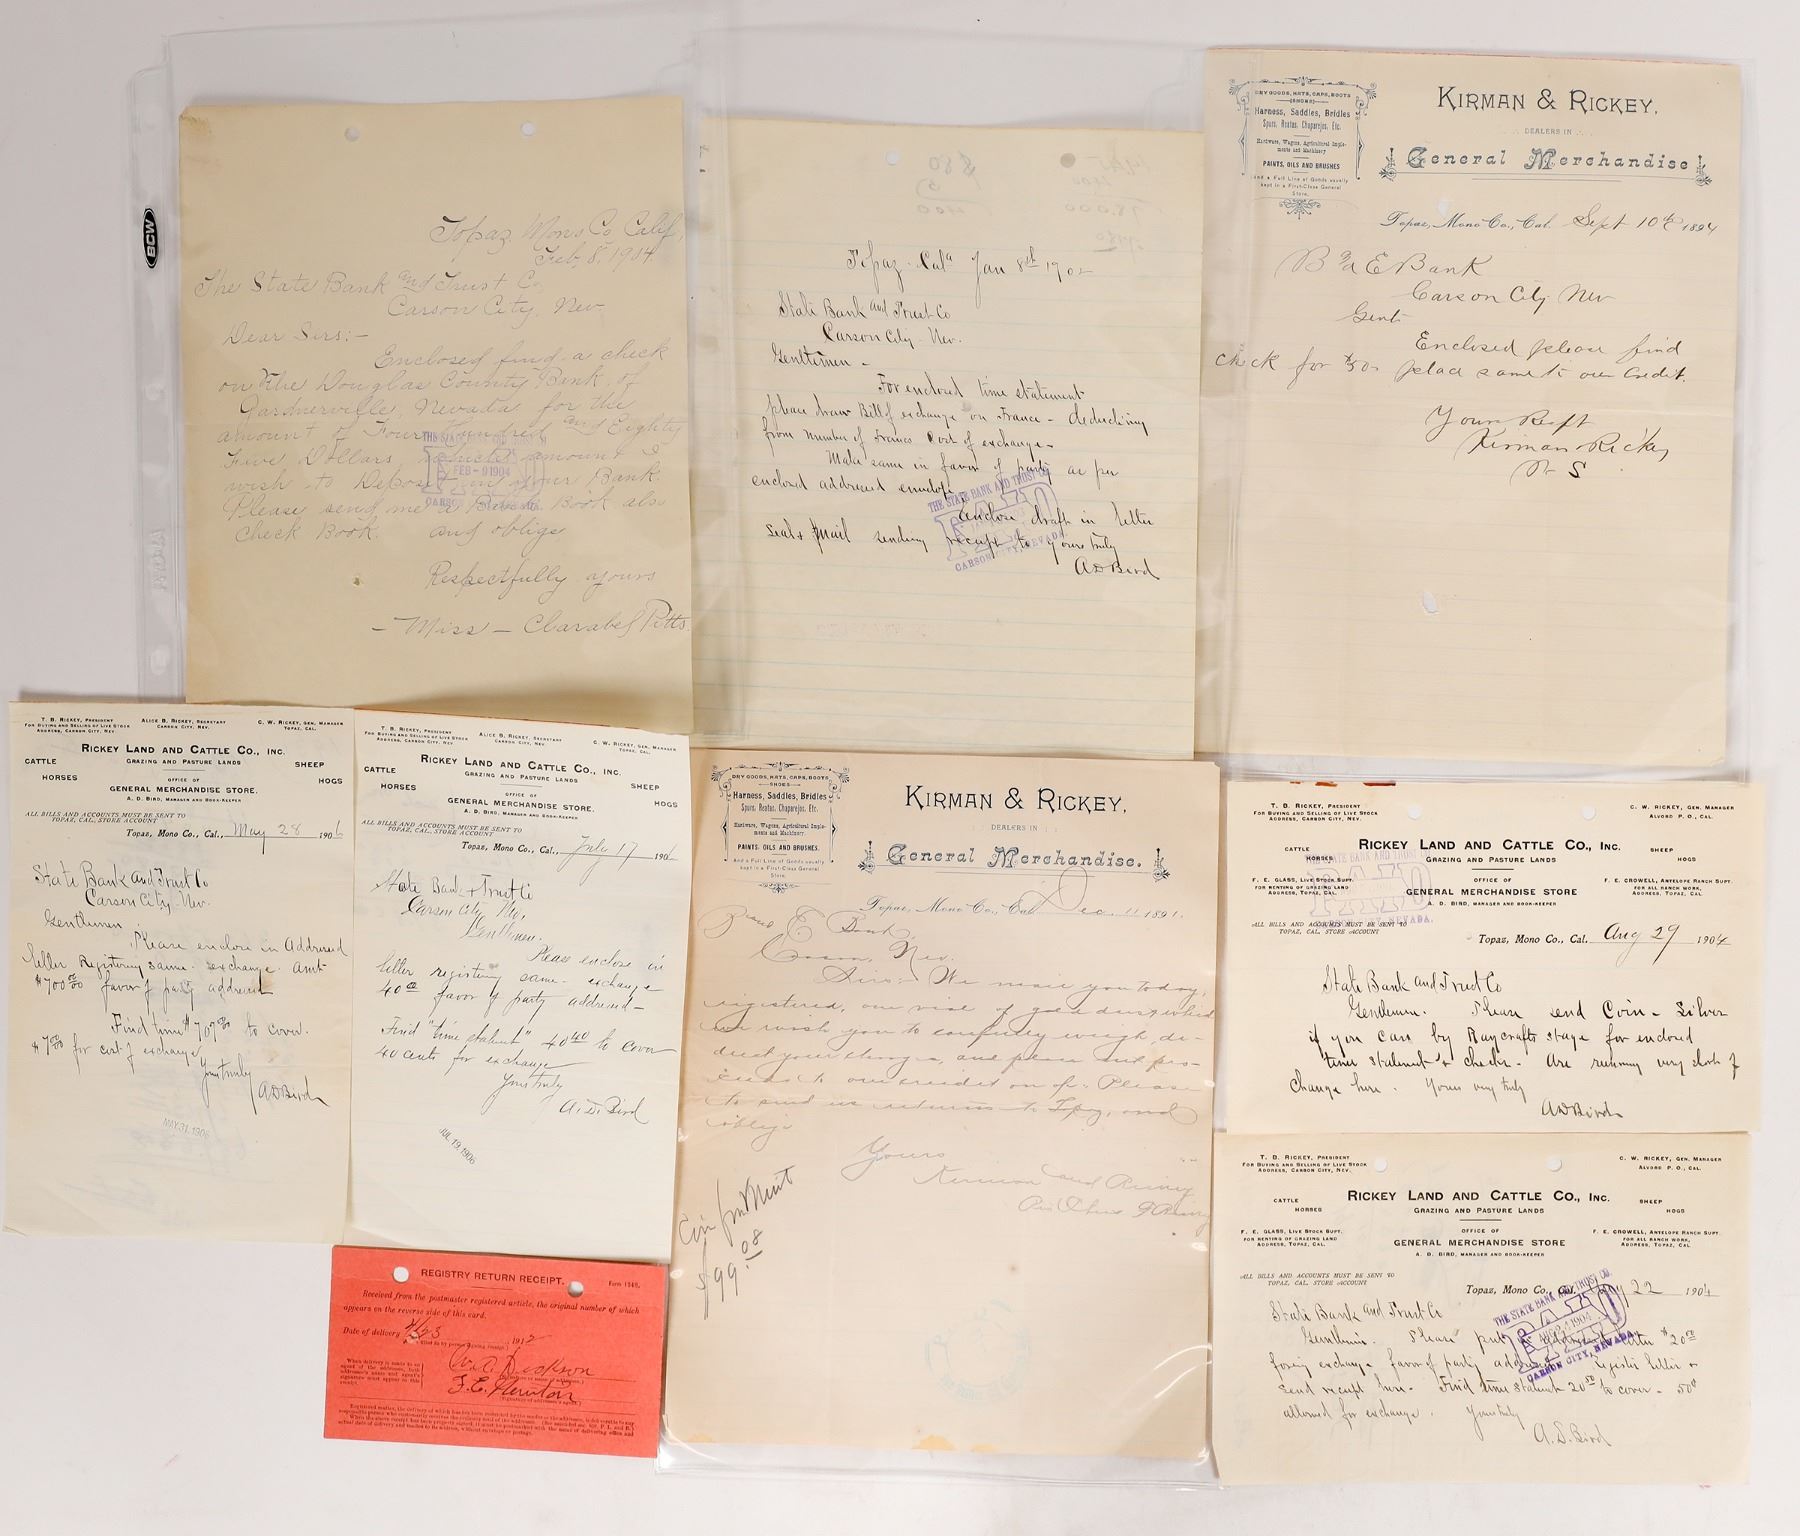 Topaz Mono Co Calif,
Feb, 8, 1904
The State Bank and Trust Co,
Carson City, Nev,
Dear Sirs:-
Enclosed find a check
on the Douglas County Bank of
Gardnerville, Nevada for the
amount of Four Hundred and Eighty
Five Dollars, which amount I
wish to Deposit in your Bank.
Please send me a Bank Book also
Check Book. and oblige
Respectfully yours
- Miss - Clarabel Pitts.
FEB - 9 1904
PAID
BCW
Topaz - Cala Jan 8th 1902
State Bank and Trust Co
Carson City - Nev.
Gentlemen -
For enclosed time statement
please draw Bill of exchange on France - deducting
from number of Francs Cost of exchange -
Make same in favor of party as per
enclosed addressed envelope
enclose draft in letter
seal & mail sending receipt to yours truly
A D Bird
THE STATE BANK AND TRUST CO.
PAID
CARSON CITY, NEVADA.
DRY GOODS, HATS, CAPS, BOOTS
SHOES
Harness, Saddles, Bridles
Spurs, Reatas, Chaparejos, Etc.
Hardware, Wagons, Agricultural Imple-
ments and Machinery
PAINTS, OILS AND BRUSHES
And a Full Line of Goods usually
kept in a First-Class General
Store.
KIRMAN & RICKEY,
DEALERS IN
General Merchandise
Topaz, Mono Co., Cal. Sept 10th 1894
B and E Bank
Carson City Nev
Gents
Enclosed please find
check for $50 place same to our Credit.
Yours Respt
Kirman & Rickey
T. B. RICKEY, PRESIDENT
FOR BUYING AND SELLING OF LIVE STOCK
ADDRESS, CARSON CITY, NEV.
ALICE B. RICKEY, SECRETARY
CARSON CITY, NEV.
C. W. RICKEY, GEN. MANAGER
TOPAZ, CAL.
RICKEY LAND AND CATTLE CO., INC.
CATTLE GRAZING AND PASTURE LANDS SHEEP
HORSES OFFICE OF HOGS
GENERAL MERCHANDISE STORE.
A. D. BIRD, MANAGER AND BOOK-KEEPER
ALL BILLS AND ACCOUNTS MUST BE SENT TO
TOPAZ, CAL, STORE ACCOUNT
Topaz, Mono Co., Cal., May 28 1906
State Bank and Trust Co
Carson City, Nev.
Gentlemen
Please enclose in Addressed
letter Registering same - exchange Amt
$700.00 favor of party addressed
Find time $707.00 to cover.
$7.00 for cost of exchange
Yours truly
A D Bird
MAY 31, 1906
T. B. RICKEY, PRESIDENT
FOR BUYING AND SELLING OF LIVE STOCK
ADDRESS, CARSON CITY, NEV
ALICE B. RICKEY, SECRETARY
CARSON CITY, NEV.
C. W. RICKEY, GEN. MANAGER
TOPAZ, CAL.
RICKEY LAND AND CATTLE CO., INC.
CATTLE GRAZING AND PASTURE LANDS SHEEP
HORSES OFFICE OF HOGS
GENERAL MERCHANDISE STORE.
A. D. BIRD, MANAGER AND BOOK-KEEPER
ALL BILLS AND ACCOUNTS MUST BE SENT TO
TOPAZ, CAL, STORE ACCOUNT
Topaz, Mono Co., Cal., July 17 1906
State Bank & Trust Co
Carson City Nev,
Gentlemen.
Please enclose in
letter registering same - exchange
40.00 favor of party addressed -
Find "time statement" 40.40 to cover
40 cents for exchange
Yours truly
A. D. Bird
JUL 19, 1906
DRY GOODS, HATS, CAPS, BOOTS
SHOES
Harness, Saddles, Bridles
Spurs, Reatas, Chaparejos, Etc.
Hardware, Wagons, Agricultural Imple-
ments and Machinery.
PAINTS, OILS AND BRUSHES.
And a Full Line of Goods usually
kept in a First-Class General
Store.
KIRMAN & RICKEY,
DEALERS IN
General Merchandise.
Topaz, Mono Co., Cal. Dec. 11 1891.
E. Bank,
Carson, Nev.
Sirs:- We mail you today,
registered, one vial of gold dust which
we wish you to carefully weigh, de-
duct your charges, and place net pro-
ceeds to our credit Please
to send us returns to Topaz, and
oblige
Yours
Kirman and Rickey
Coin from Mint
$99.08
T. B. RICKEY, PRESIDENT
FOR BUYING AND SELLING OF LIVE STOCK
ADDRESS, CARSON CITY, NEV.
C. W. RICKEY, GEN. MANAGER
ALVORD P. O., CAL.
RICKEY LAND AND CATTLE CO., INC.
CATTLE GRAZING AND PASTURE LANDS SHEEP
HORSES HOGS
F. E. GLASS, LIVE STOCK SUPT.
FOR RENTING OF GRAZING LAND
ADDRESS, TOPAZ, CAL.
OFFICE OF
GENERAL MERCHANDISE STORE
A. D. BIRD, MANAGER AND BOOK-KEEPER
F. E. CROWELL, ANTELOPE RANCH SUPT.
FOR ALL RANCH WORK,
ADDRESS, TOPAZ, CAL.
ALL BILLS AND ACCOUNTS MUST BE SENT TO
TOPAZ, CAL, STORE ACCOUNT
Topaz, Mono Co., Cal. Aug 29 1904
State Bank and Trust Co
Gentlemen. Please send Coin - Silver
if you can by Raycrafts stage for enclosed
time statement & checks. Are running very short of
Change here. Yours very truly
A D Bird
T. B. RICKEY, PRESIDENT
FOR BUYING AND SELLING OF LIVE STOCK
ADDRESS, CARSON CITY, NEV.
C. W. RICKEY, GEN. MANAGER
ALVORD P. O., CAL.
RICKEY LAND AND CATTLE CO., INC.
CATTLE GRAZING AND PASTURE LANDS SHEEP
HORSES HOGS
F. E. GLASS, LIVE STOCK SUPT.
FOR RENTING OF GRAZING LAND
ADDRESS, TOPAZ, CAL.
OFFICE OF
GENERAL MERCHANDISE STORE
A. D. BIRD, MANAGER AND BOOK-KEEPER
F. E. CROWELL, ANTELOPE RANCH SUPT.
FOR ALL RANCH WORK,
ADDRESS, TOPAZ, CAL.
ALL BILLS AND ACCOUNTS MUST BE SENT TO
TOPAZ, CAL, STORE ACCOUNT
Topaz, Mono Co., Cal. 22 1904
State Bank and Trust Co
Gentlemen. Please put in addressed letter $20.00
foreign exchange favor of party addressed Register letter &
send receipt here. Find time statement 20.50 to cover - 50¢
allowed for exchange. Yours truly
A. D. Bird
THE STATE BANK AND TRUST CO.
PAID
CARSON CITY, NEVADA.
REGISTRY RETURN RECEIPT. Form 1548.
Received from the postmaster registered article, the original number of which
appears on the reverse side of this card.
Date of delivery 4/23, 1912
When delivery is made to an
agent of the addressee, both
addressee's name and agent's
signature must appear to this
receipt.
Dickson
F. E. Newton